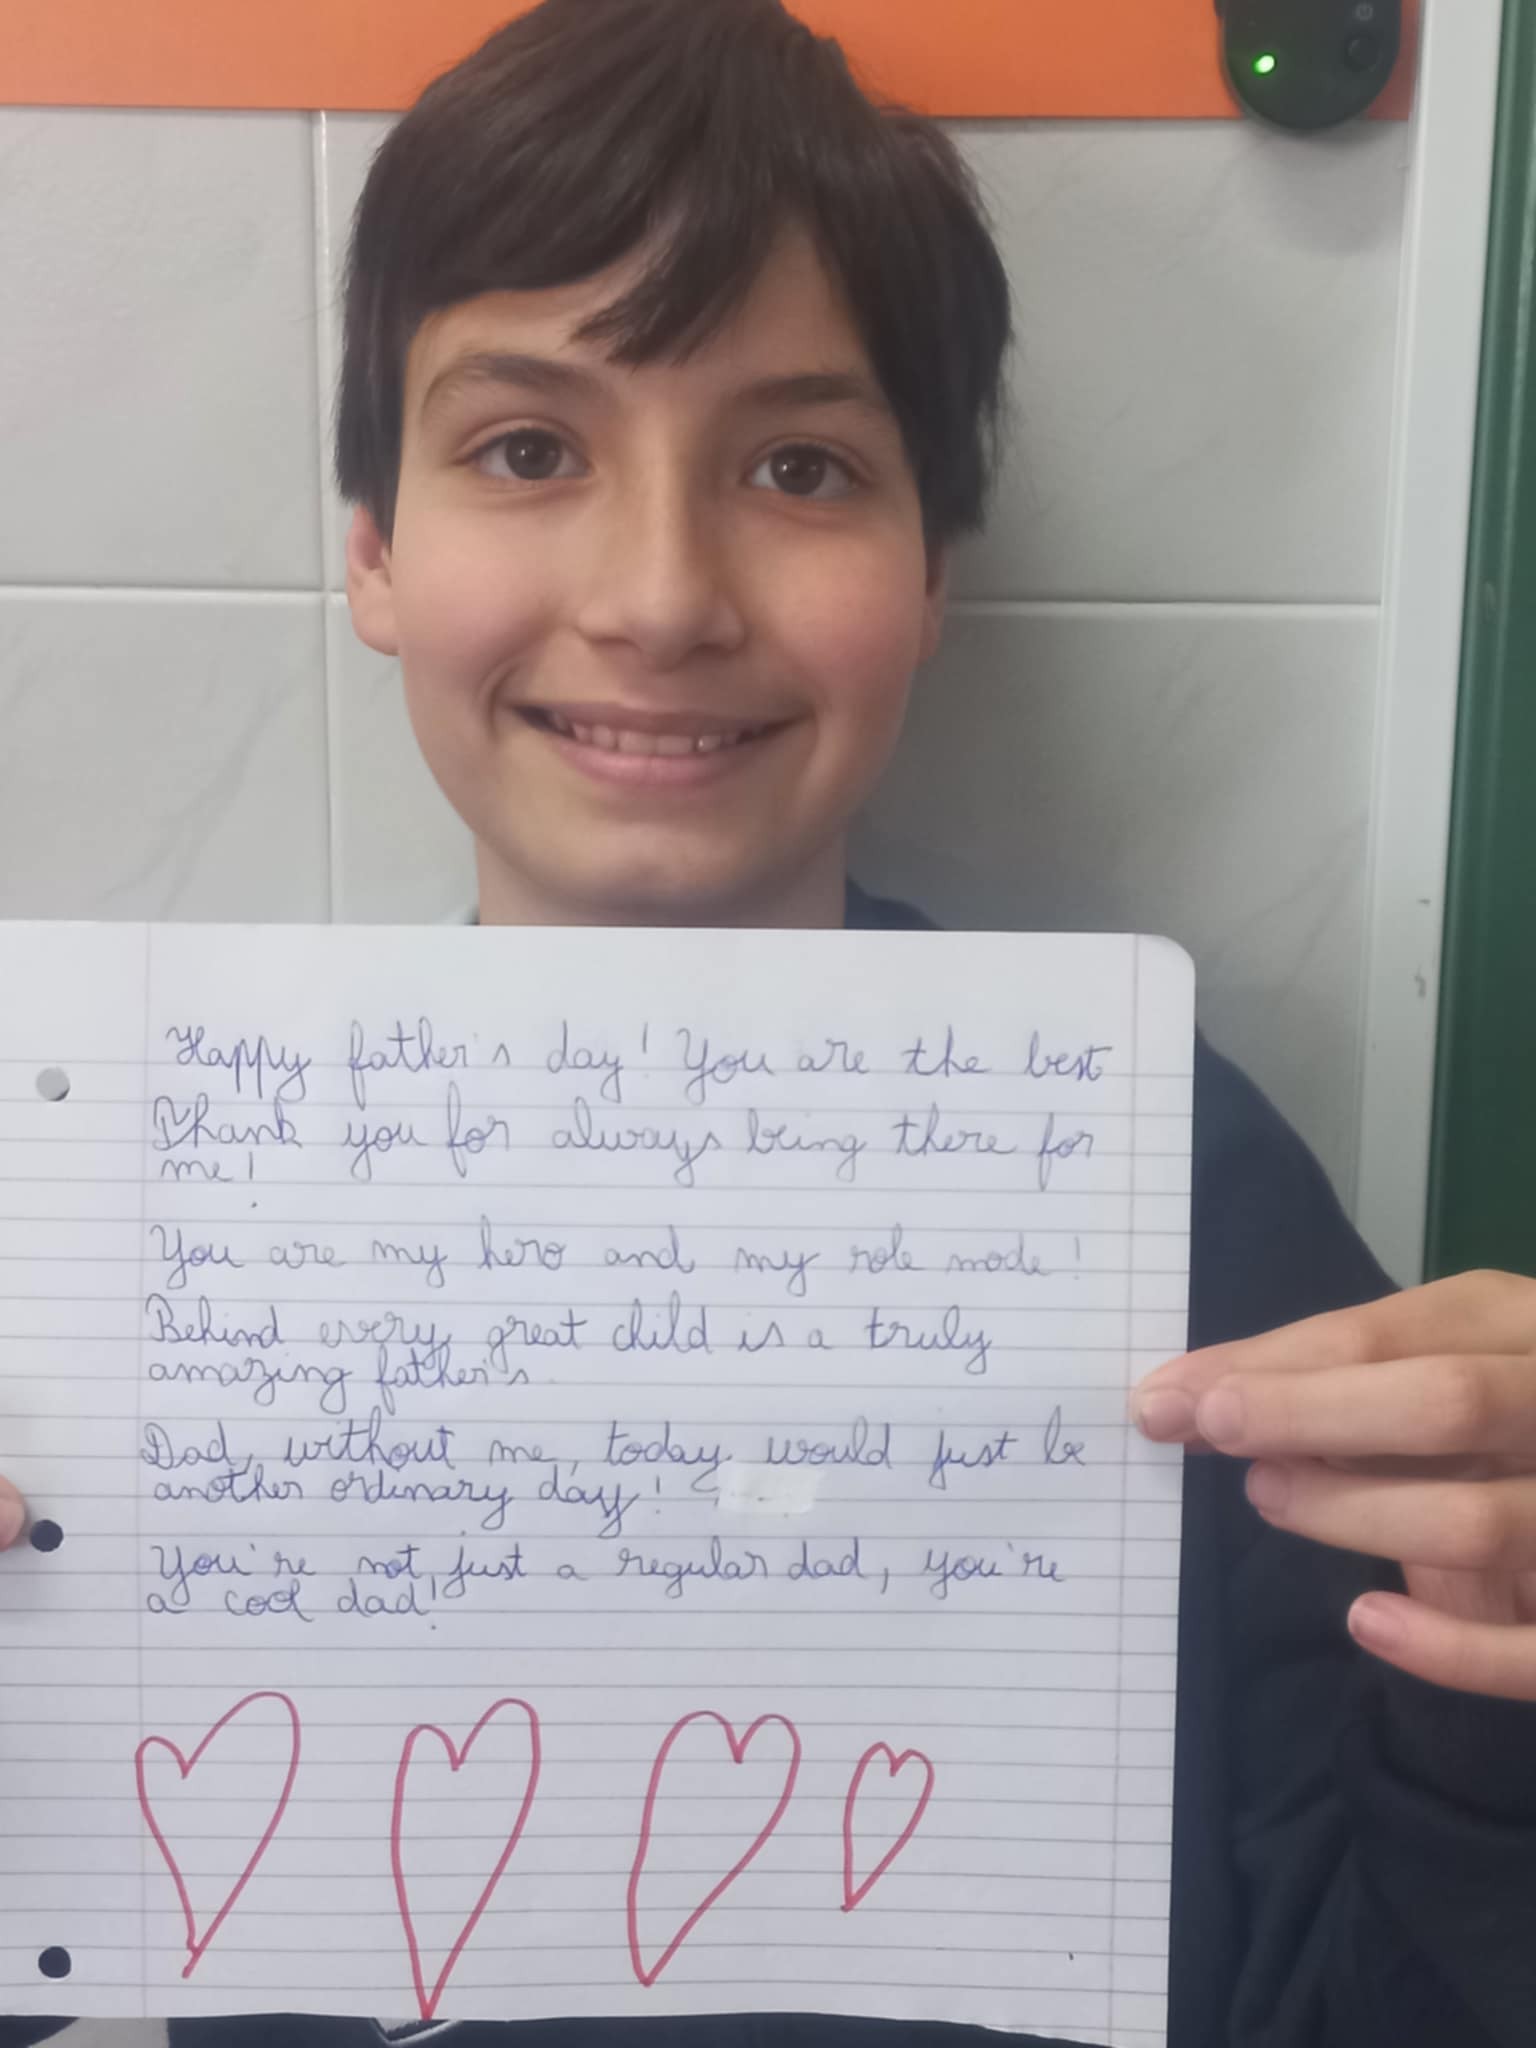 Happy father's day! You are the best
Thank you for always being there for
me!
You are my hero and my role mode!
Behind every great child is a truly
amazing father's.
Dad, without me, today would just be
another ordinary day!
You're not just a regular dad, you're
a cool dad!